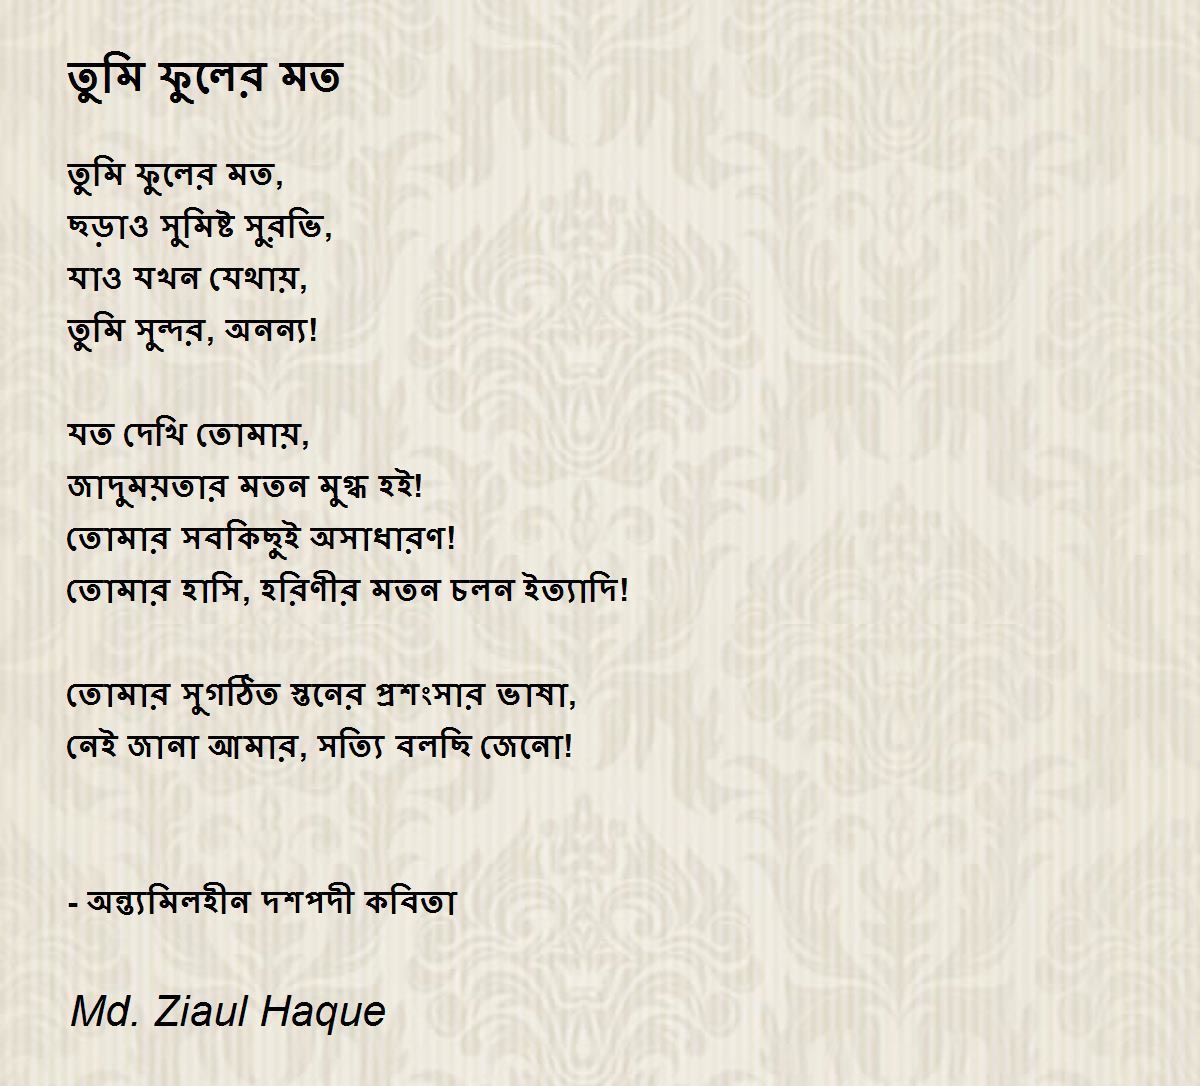 তুমি ফুলের মত
তুমি ফুলের মত,
ছড়াও সুমিষ্ট সুরভি,
যাও যখন যেথায়,
তুমি সুন্দর, অনন্য!
যত দেখি তোমায়,
জাদুময়তার মতন মুগ্ধ হই!
তোমার সবকিছুই অসাধারণ!
তোমার হাসি, হরিণীর মতন চলন ইত্যাদি!
তোমার সুগঠিত স্তনের প্রশংসার ভাষা,
নেই জানা আমার, সত্যি বলছি জেনো!
- অন্ত্যমিলহীন দশপদী কবিতা
Md. Ziaul Haque